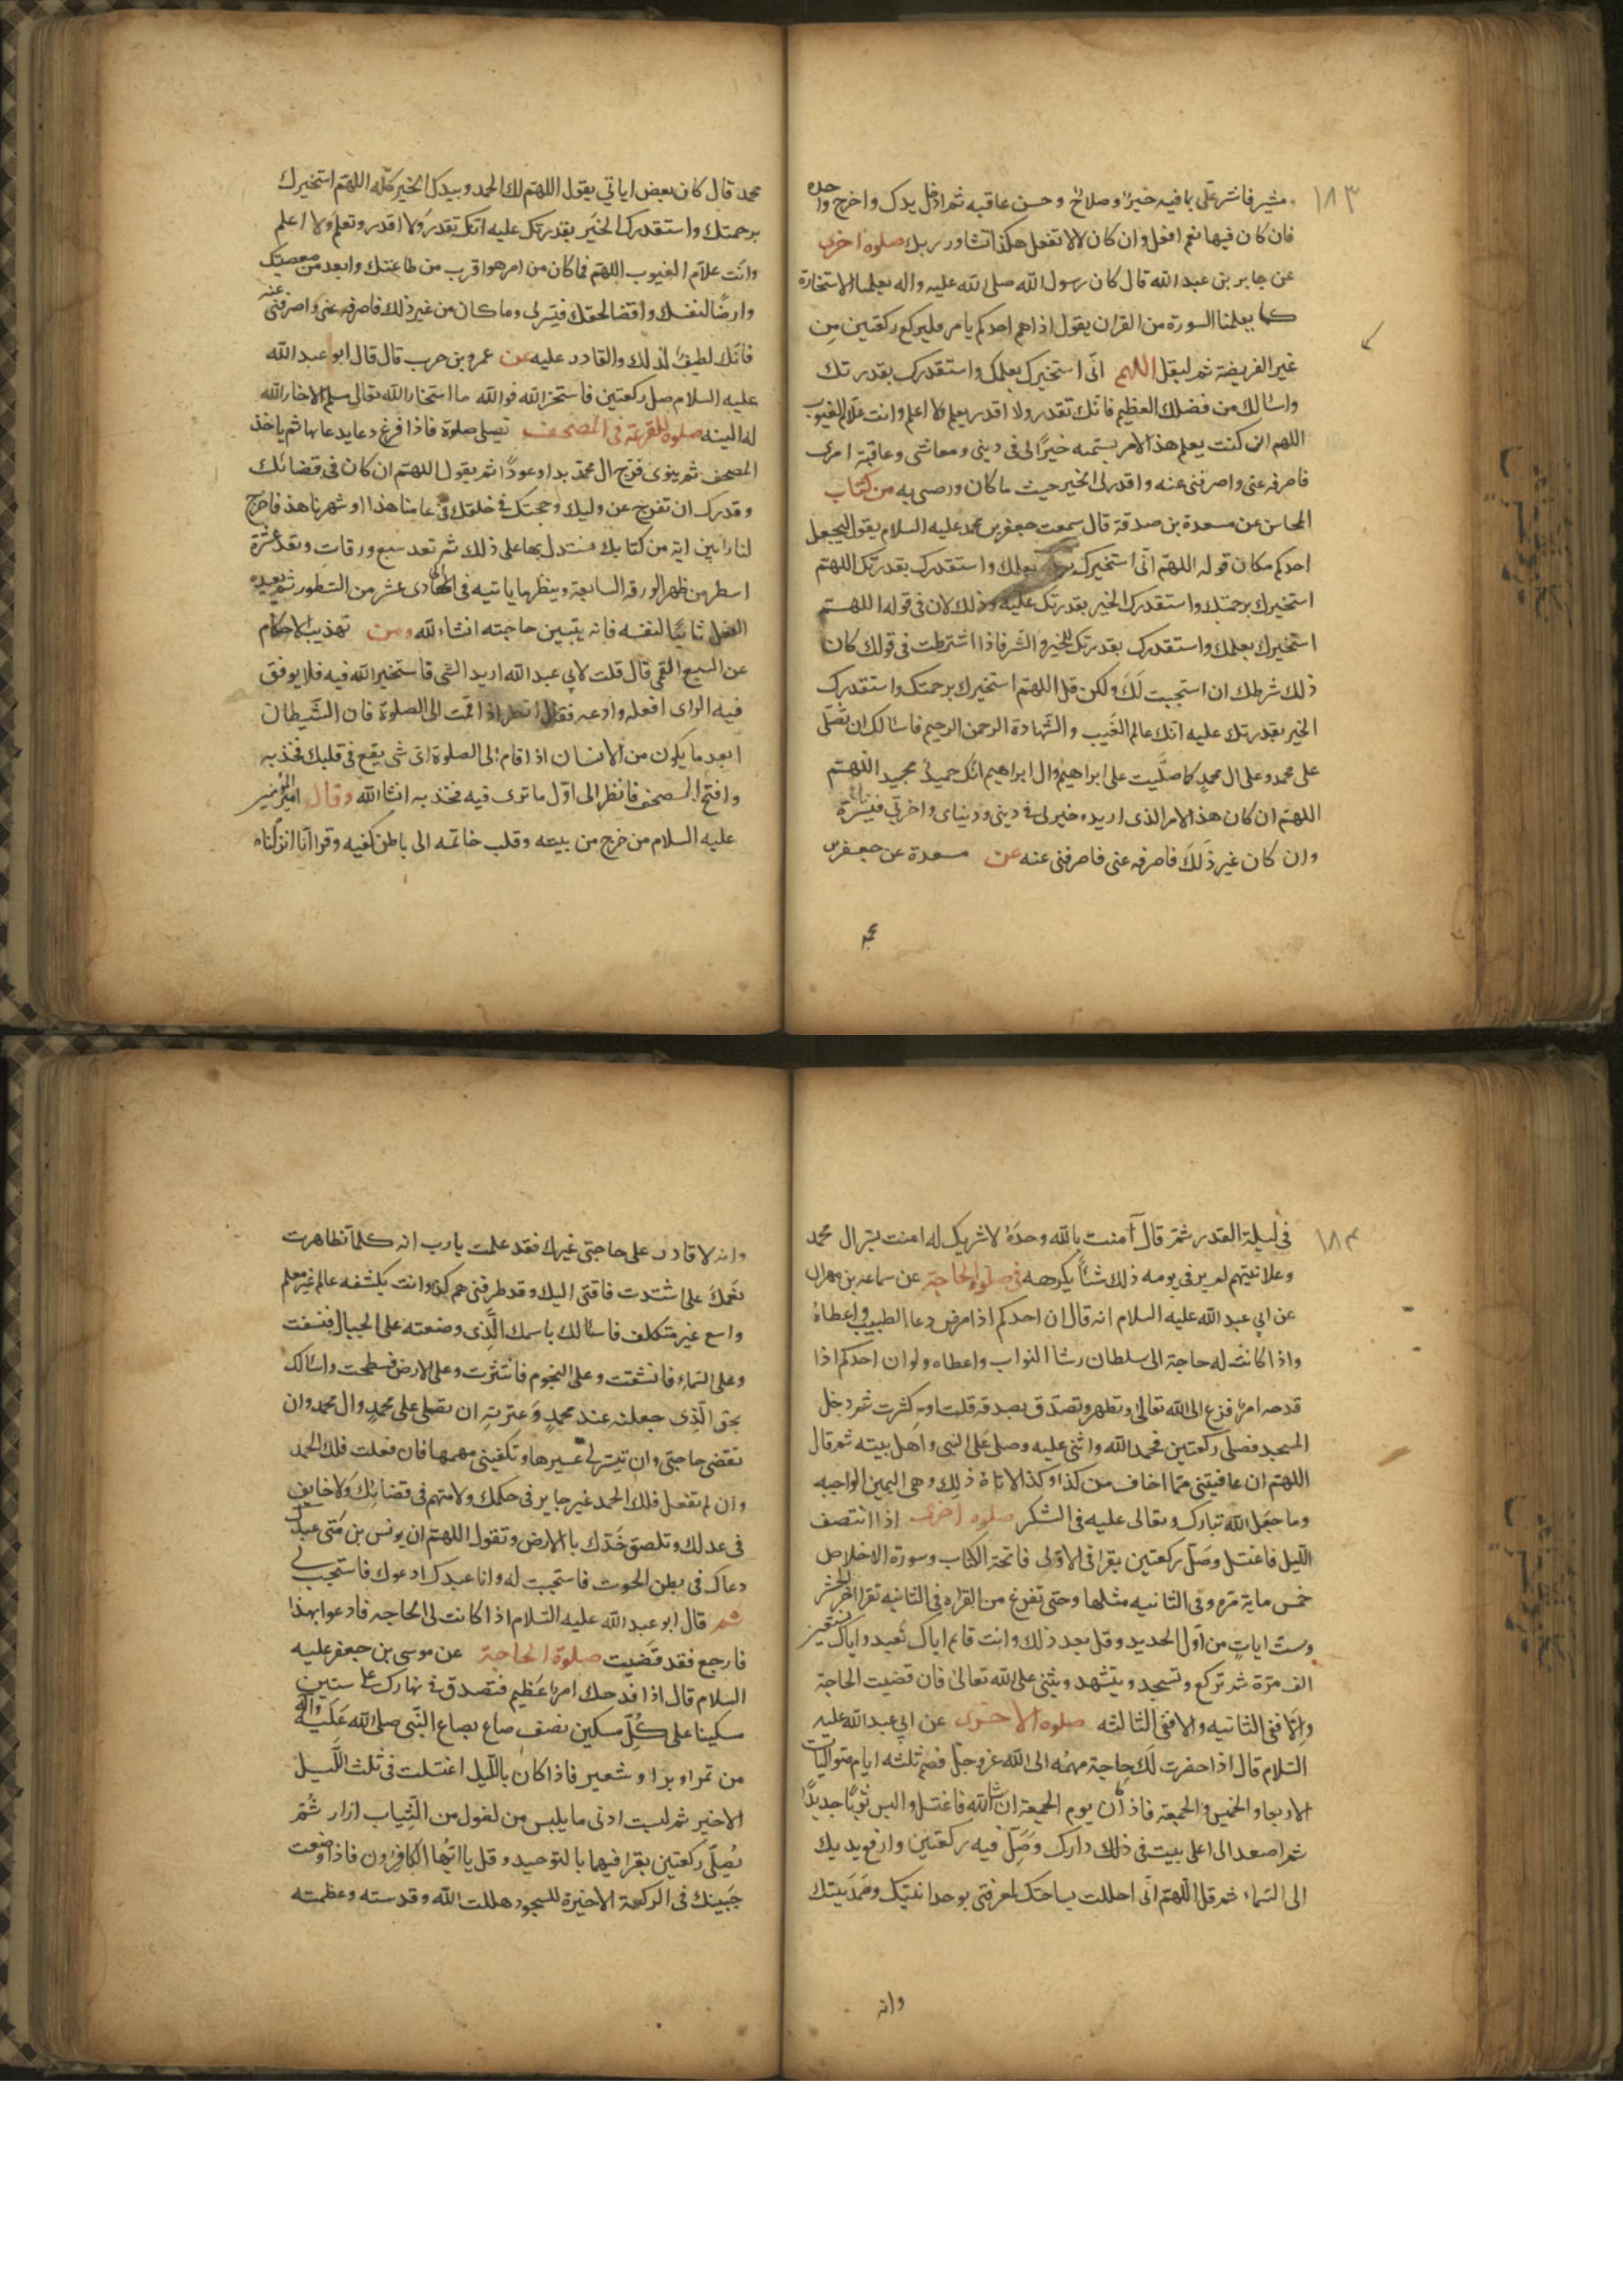 ١٨٣
مشير فاشر علي بما فيه خير وصلاح وحسن عاقبه ثم ادخل يدك واخرج واحده
فان كان فيها نعم افعل وان كان لا لا تفعل هكذا تشاور ربك صلوة اخرى
عن جابر بن عبد الله قال كان رسول الله صلى الله عليه واله يعلمنا الاستخارة
كما يعلمنا السورة من القران يقول اذا هم احدكم بامر فليركع ركعتين من
غير الفريضة ثم ليقل اللهم انى استخيرك بعلمك واستقدرك بقدرتك
واسالك من فضلك العظيم فانك تقدر ولا اقدر وتعلم ولا اعلم وانت علام الغيوب
اللهم ان كنت تعلم هذا الامر يسميه خيرًا لى فى دينى ومعاشى وعاقبة امرى
فاصرفه عنى واصرفنى عنه واقدر لى الخير حيث ما كان ورضنى به من كتاب
المحاسن عن مسعدة بن صدقة قال سمعت جعفر بن محمد عليه السلام يقول ليجعل
احدكم مكان قوله اللهم انى استخيرك بعلمك واستقدرك بقدرتك اللهم
استخيرك برحمتك واستقدرك الخير بقدرتك عليه وذلك لان فى قوله اللهم
استخيرك بعلمك واستقدرك بقدرتك للخير والشر فاذا اشترطت فى قولك كان
ذلك شرطك ان استجيب لك ولكن قل اللهم استخيرك برحمتك واستقدرك
الخير بقدرتك عليه انك عالم الغيب والشهادة الرحمن الرحيم فاسالك ان تصلى
على محمد وعلى ال محمد كما صليت على ابراهيم وال ابراهيم انك حميد مجيد اللهم
اللهم ان كان هذا الامر الذى اريده خير لى فى دينى ودنياى واخرتى فيسره لى
وان كان غير ذلك فاصرفه عنى فاصرفنى عنه عن مسعدة عن جعفر بن
محمد
محمد قال كان بعض اياتى يقول اللهم لك الحمد وبيدك الخير كله اللهم استخيرك
برحمتك واستقدرك الخير بقدرتك عليه انك تقدر ولا اقدر وتعلم ولا اعلم
وانت علام الغيوب اللهم فما كان من امر هو اقرب من طاعتك وابعد من معصيتك
وارضًا لنفسك واقضا لحقك فيسر لى وما كان من غير ذلك فاصرفه عنى واصرفنى عنه
فانك لطيف لذلك والقادر عليه عن عمرو بن حرب قال قال ابو عبد الله
عليه السلام صل ركعتين فاستخر الله فوالله ما استخار الله تعالى مسلم الا خار الله
له البته صلوة للقرعة فى المصحف تصلى صلوة فاذا فرغ دعا يدعا بها ثم ياخذ
المصحف ثم ينوى فرج ال محمد بداوعودًا ثم يقول اللهم ان كان فى قضائك
وقدرك ان تفرج عن وليك وحجتك فى خلقك فى عامنا هذا او شهرنا هذا فاخرج
لنا راس اية من كتابك نستدل بها على ذلك ثم تعد سبع ورقات وتعد عشرة
اسطر من ظهر الورقه السابعة وينظر ما ياتيه فى الحادى عشر من السطور ثم يعيده
الفعل ثانيًا لنفسه فانه يتبين حاجته انشاء لله ومن تهذيب الاحكام
عن اليسع القمى قال قلت لابى عبد الله اريد الشى فاستخير الله فيه فلا يوفق
فيه الراى افعله وادعه فقال انظر اذا قمت الى الصلوة فان الشيطان
ابعد ما يكون من الانسان اذا قام الى الصلوة اى شى يقع فى قلبك فخذ به
وافتح المصحف فانظر الى اول ما ترى فيه فخذ به انشا الله وقال امير المؤمنين
عليه السلام من خرج من بيته وقلب خاتمه الى باطن كفيه وقرا انا انزلناه
١٨٤
فى ليلة القدر ثم قال آمنت بالله وحده لا شريك له امنت بسر ال محمد
وعلانيتهم لم ير فى يومه ذلك شئًا يكرهه فى صلوة الحاجة عن سماعه بن مهران
عن ابى عبد الله عليه السلام انه قال ان احدكم اذا مرض دعا الطبيب واعطاه
واذا كانت له حاجة الى سلطان رشا النواب واعطاه ولو ان احدكم اذا
قدحه امر فزع الى الله تعالى وتطهر وتصدق بصدقة قلت او كثرت ثم دخل
المسجد فصلى ركعتين فحمد الله واثنى عليه وصلى على النبى واهل بيته ثم قال
اللهم ان عافيتنى مما اخاف من كذا وكذا الا تاة ذلك وهى اليمين الواجبه
وما جعل الله تبارك وتعالى عليه فى الشكر صلوة اخرى اذا انتصف
الليل فاغتسل وصل ركعتين يقرا فى الاولى فاتحة الكتاب وسورة الاخلاص
خمس ماية مرة وفى الثانيه مثلها وحتى تفرغ من القراه فى الثانيه تقرا اخر الحشر
وست ايات من اول الحديد وقل بعد ذلك وانت قايم اياك نعبد واياك نستعين
الف مرة ثم تركع وتسجد وتتشهد وتثنى على الله تعالى فان قضيت الحاجة
والا فى الثانيه والا ففى الثالثه صلوة الاخرى عن ابى عبد الله عليه
السلام قال اذا حضرت لك حاجة مهمه الى الله عز وجل فصم ثلثه ايام متواليات
الاربعا والخميس والجمعة فاذ كان يوم الجمعة ان شا الله فاغتسل والبس ثوبًا جديدًا
ثم اصعد الى اعلى بيت فى ذلك دارك وصل فيه ركعتين وارفع يديك
الى السماء ثم قل اللهم انى احللت بساحتك لمعرفتى بوحدانيتك وصمديتك
وانه
وانه لا قادر على حاجتى غيرك فقد علمت يارب انه كلما تظاهرت
نعمك على اشتدت فاقتى اليك وقد طرقنى هم كذا وانت بكشفه عالم غير معلم
واسع غير متكلف فاسالك باسمك الذى وضعته على الجبال فنسفت
وعلى السماء فانشقت وعلى النجوم فانتثرت وعلى الارض فسطحت واسالك
بحق الذى جعلته عند محمد وعترته ان تصلى على محمد وال محمد وان
تقضى حاجتى وان تيسر لى عسيرها وتكفينى مهمها فان فعلت فلك الحمد
وان لم تفعل فلك الحمد غير جاير فى حكمك ولا متهم فى قضائك ولا خايف
فى عدلك وتلصق خدك باالارض وتقول اللهم ان يونس بن متى عبدك
دعاك فى بطن الحوت فاستجبت له وانا عبدك ادعوك فاستجب لى
ثم قال ابو عبد الله عليه السلام اذا كانت لى الحاجه فادعوا بهذا
فارجع فقد قضيت صلوة الحاجة عن موسى بن جعفر عليه
السلام قال اذا فدحك امر عظيم فتصدق فى نهارك على ستين
مسكينا على كل مسكين نصف صاع بصاع النبى صلى الله عليه واله
من تمر او برا وشعير فاذا كان بالليل اغتسلت فى ثلث الليل
الاخير ثم لبست ادنى ما يلبس من لغول من الثياب ازار ثم
تصلى ركعتين يقرا فيها بالتوحيد وقل ياايها الكافرون فاذا وضعت
جبينك فى الركعة الاخيرة للسجود هللت الله وقدسته وعظمته